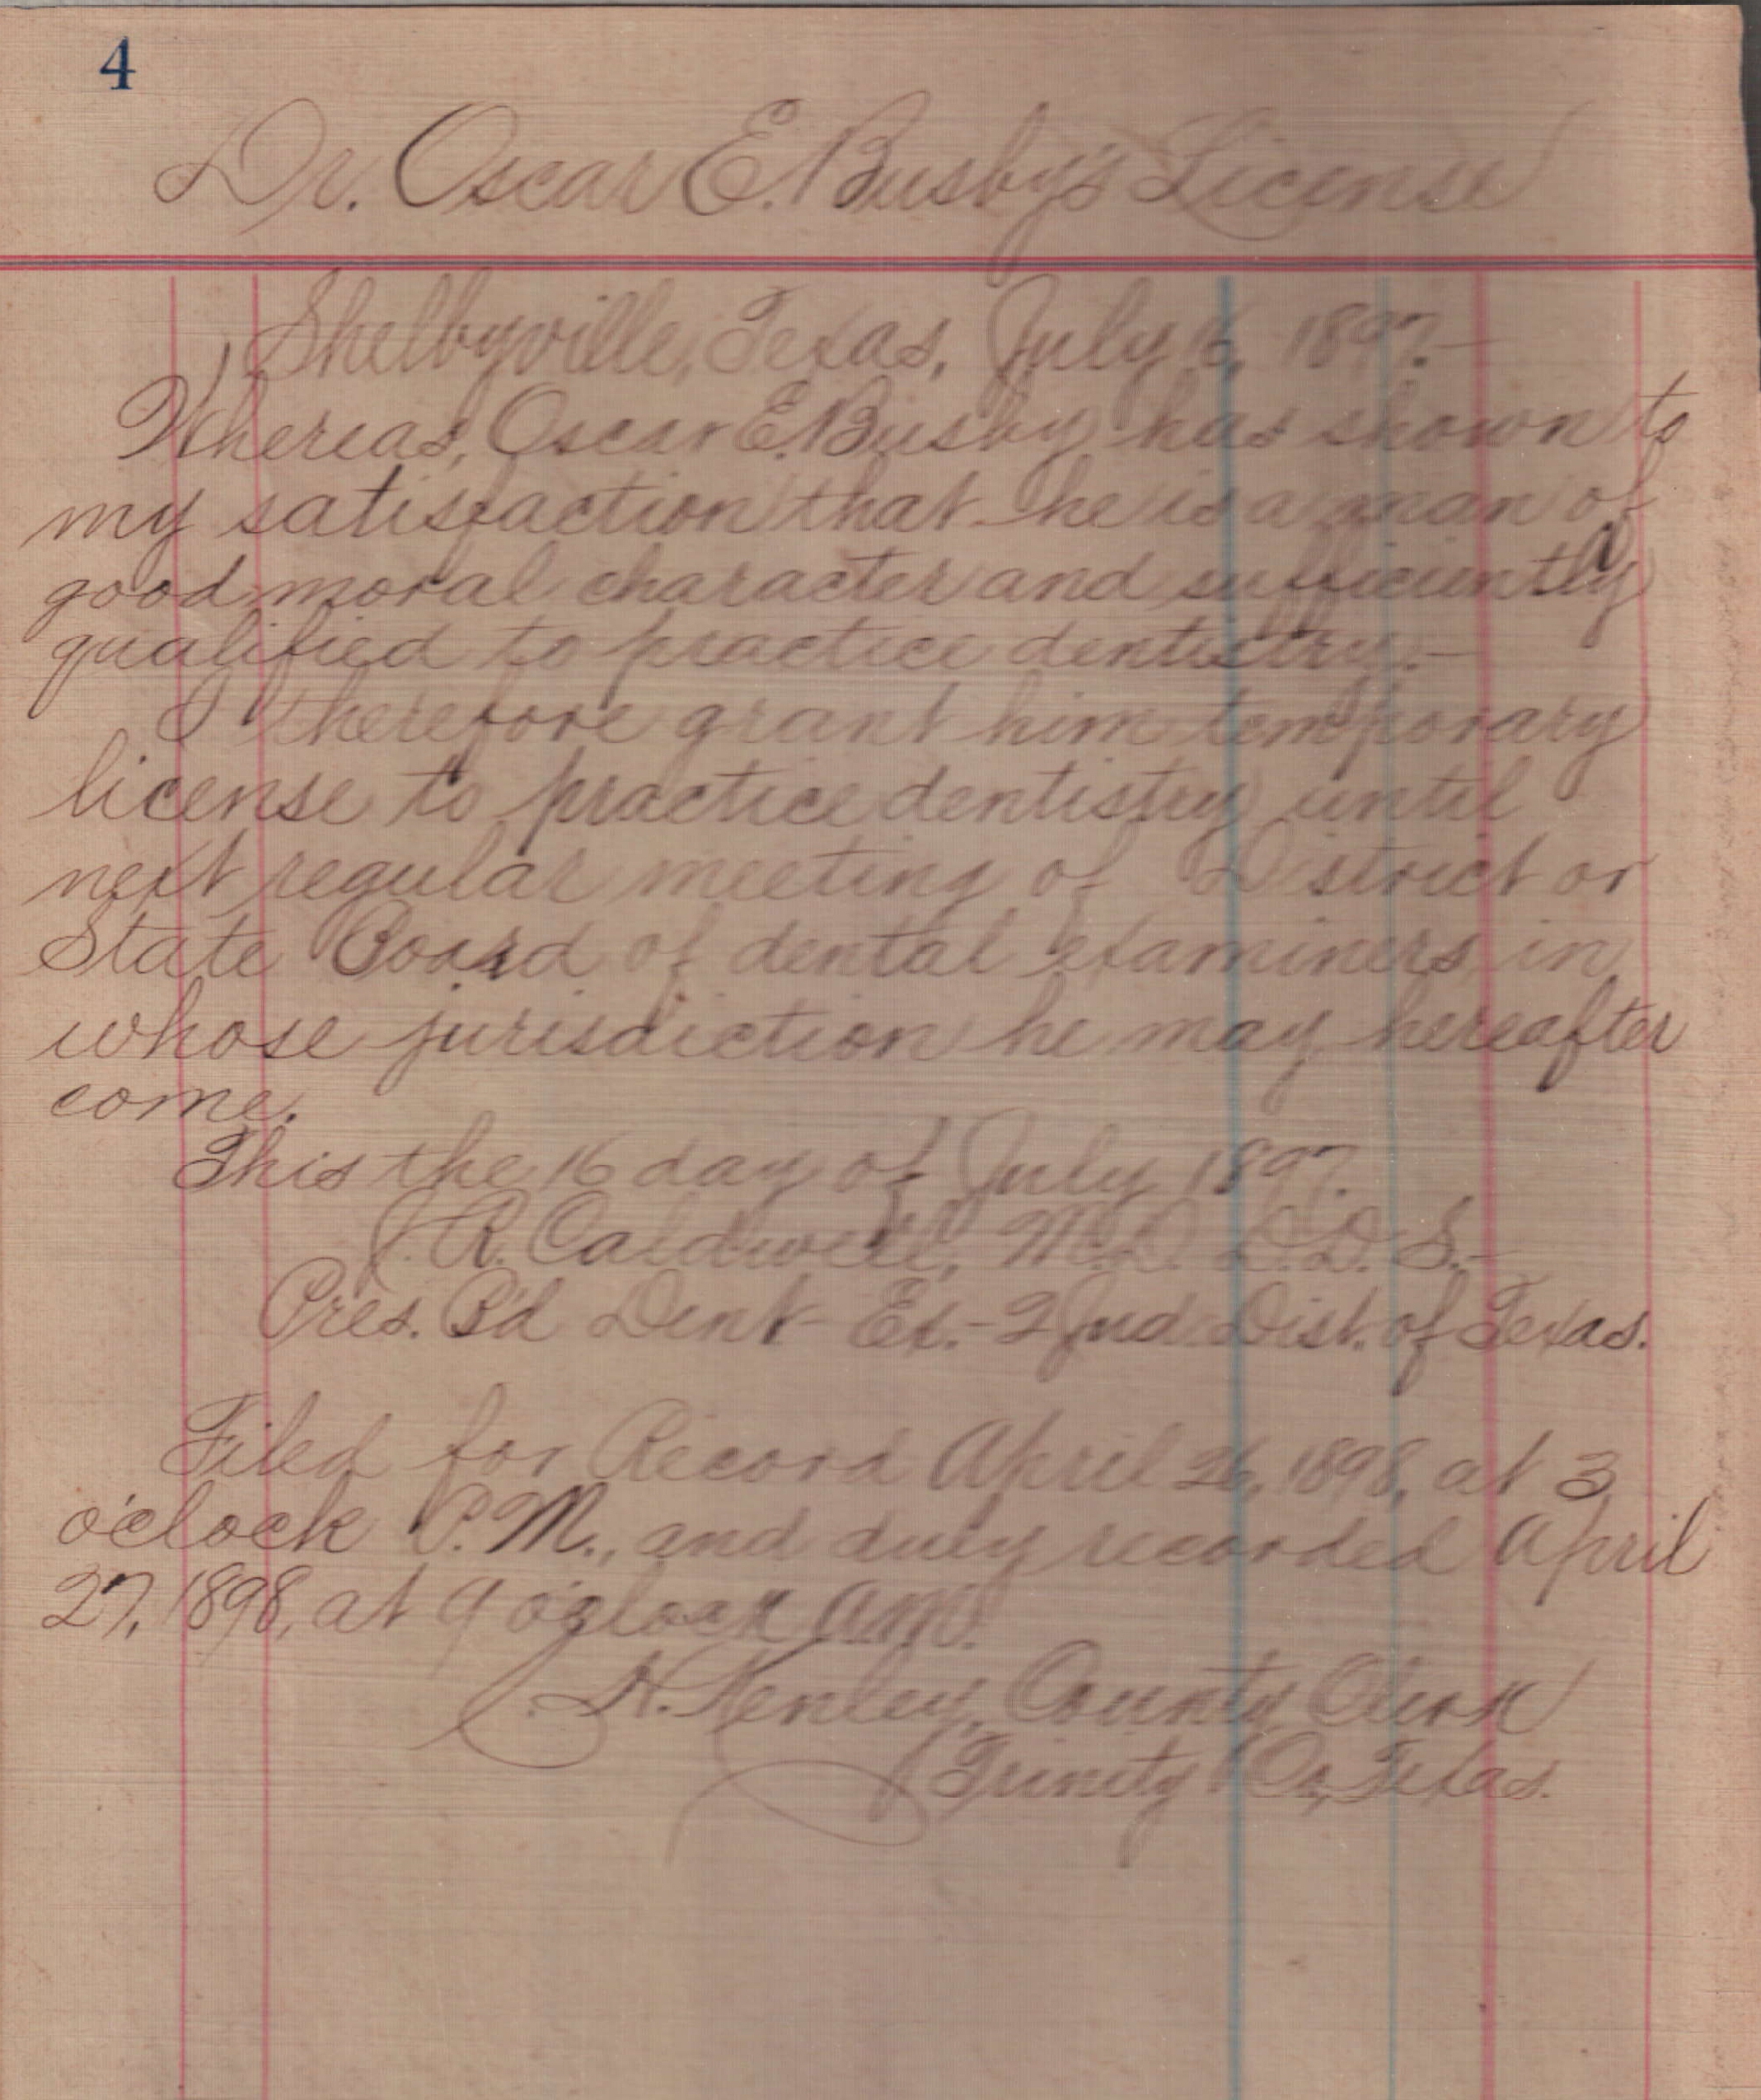 4
Dr. Oscar E. Busby's License
Shelbyville, Texas, July 16, 1897.-
Whereas, Oscar E. Busby has shown to
my satisfaction that he is a man of
good moral character and sufficiently
qualified to practice dentistry.-
I therefore grant him temporary
license to practice dentistry until
next regular meeting of District or
State Board of dental examiners in
whose jurisdiction he may hereafter
come.
This the 16 day of July 1897.
J. R. Caldwell, M.D. D.D.S.-
Pres. B'd Dent Ex.- 2 Jud. Dist. of Texas.
Filed for Record April 26, 1898, at 3
o'clock P.M., and duly recorded April
27, 1898, at 9 o'clock A.M.
H. Kenley, County Clerk
Trinity Co., Texas.